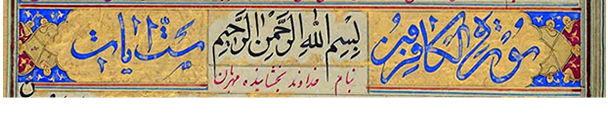 سورة الكافرون
بسم الله الرحمن الرحيم
بنام خداوند بخشاینده مهربان
ست آيات